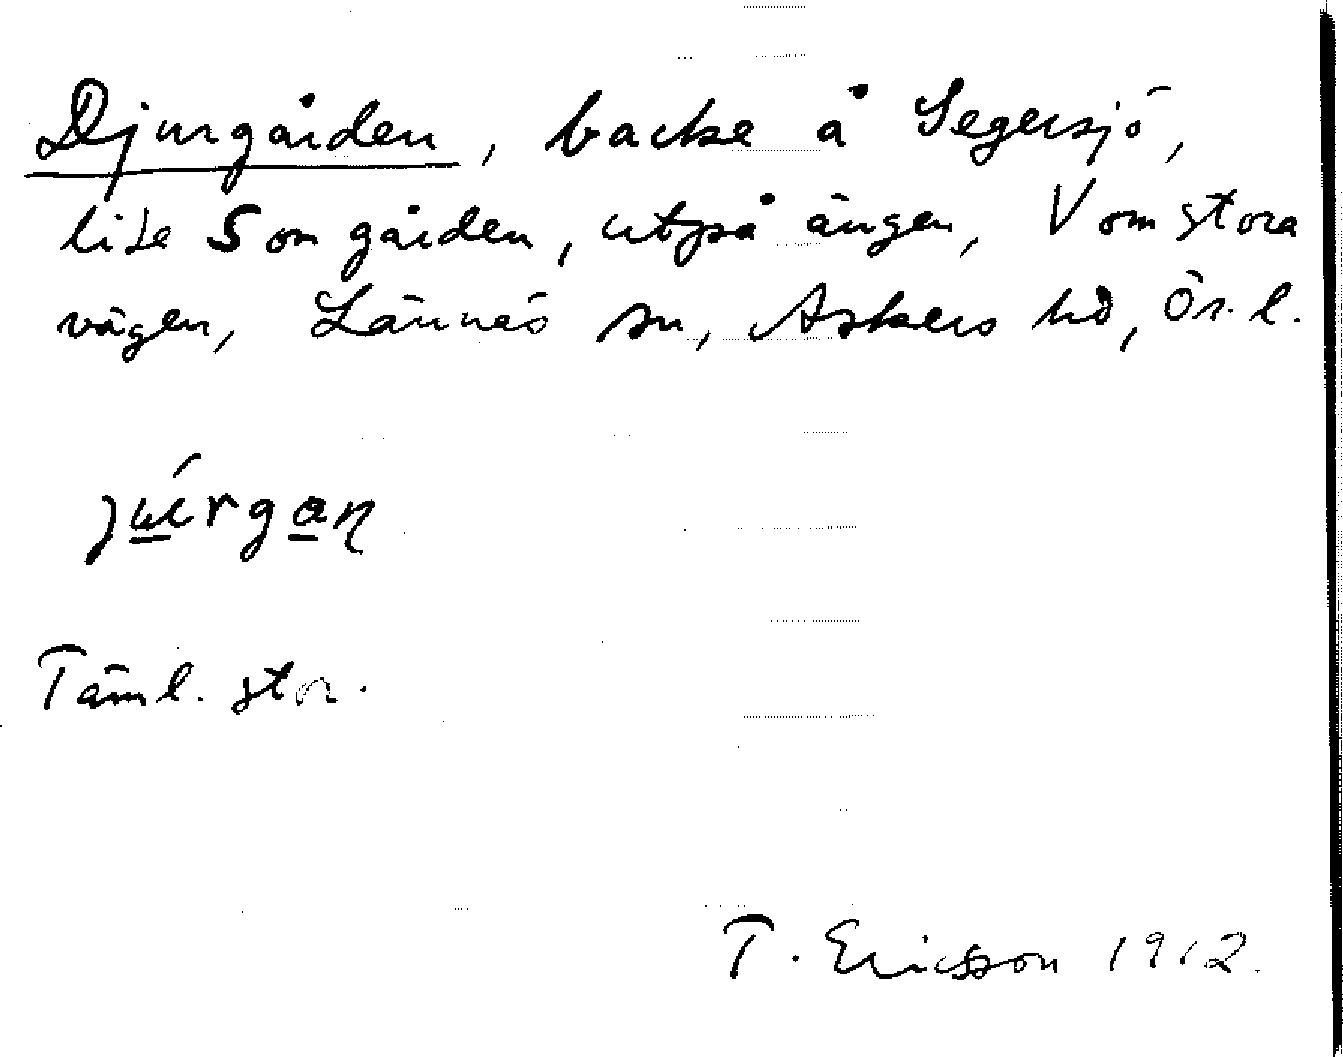 Djurgården, backe å Segersjö,
lite S om gården, utpå ängen, V om stora
vägen, Lännäs sn, Askers hd, Ör. l.
Täml. stor.
T. Ericsson 1912.